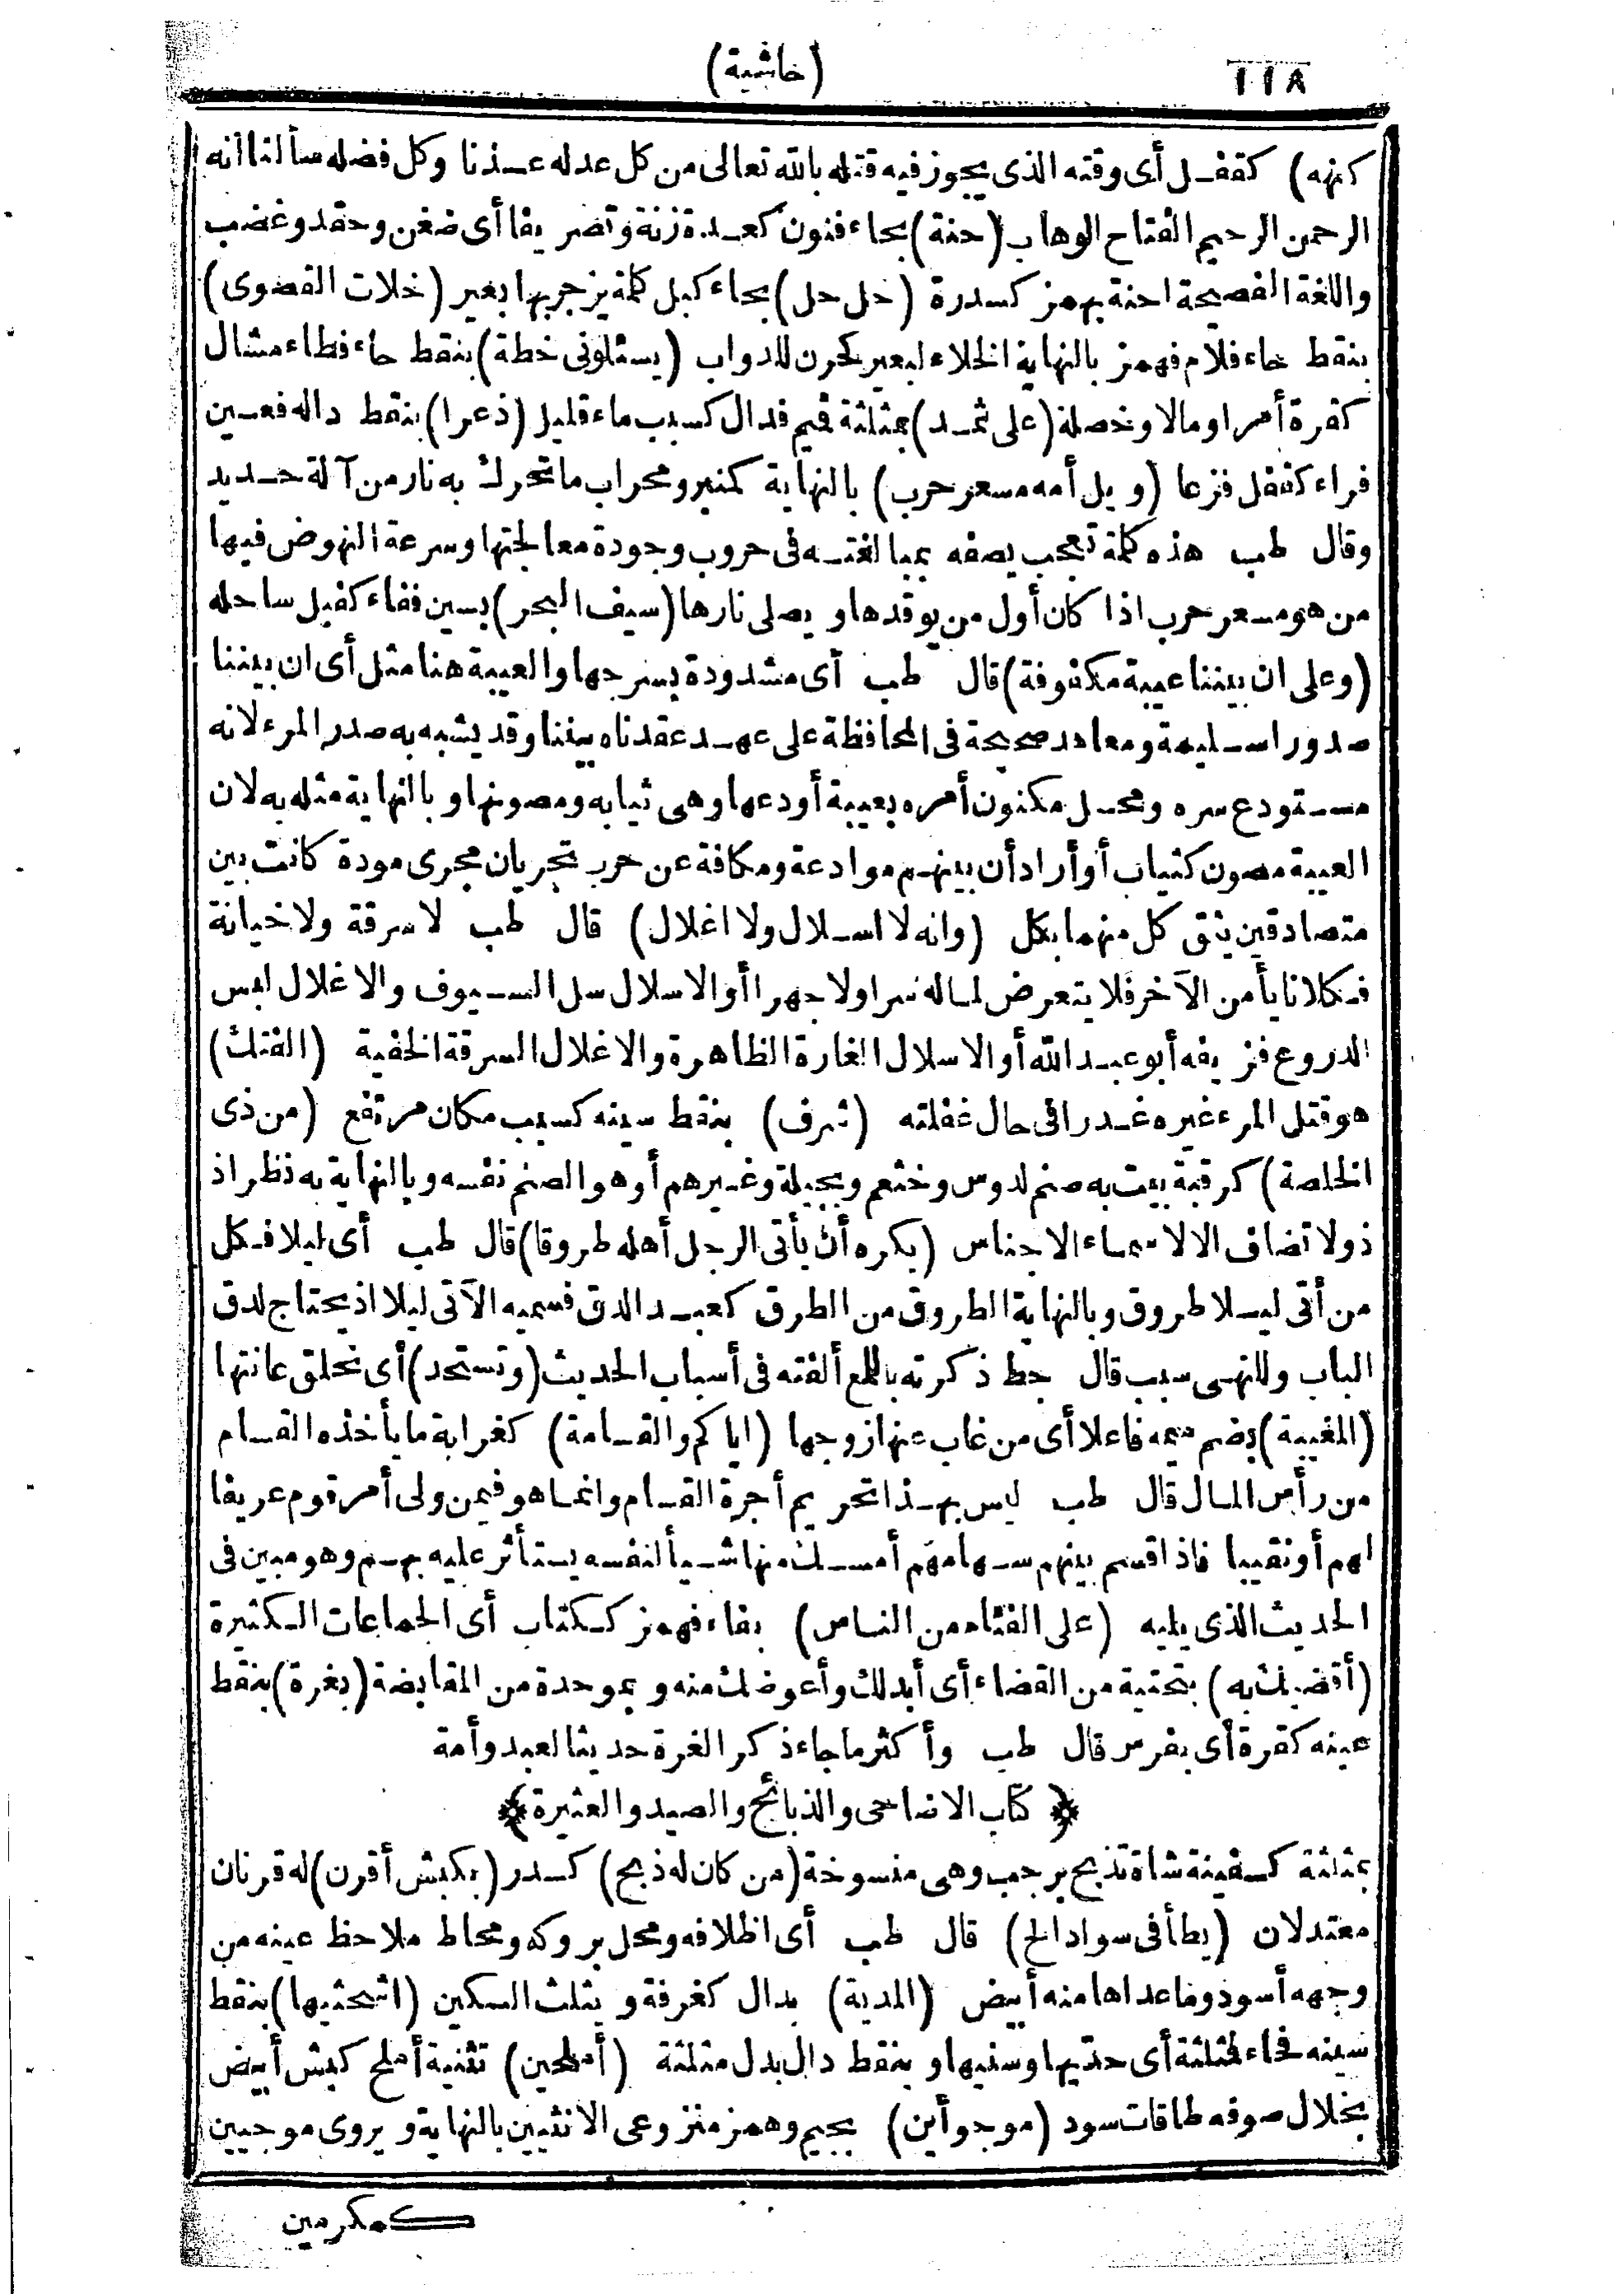 ١١٨
(حاشية)
كنهه) كقفل أى وقته الذى يجوز فيه قتله بالله تعالى من كل عدله عذنا وكل فضله سألنا انه
الرحمن الرحيم الفتاح الوهاب (حنة) بحاء فنون كعدة زنة وتضريفا أى ضغن وحقد وغضب
واللغة الفصيحة احنة بهمز كسدرة (حل حل) بحاء كبل كلمة يزجر بها بعير (خلات القصوى)
بنقط خاء فلام فهمز بالنهاية الخلاء لبعير كحرن للدواب (يسئلونى خطة) بنقط خاء فطاء مشال
كقرة أمرا و مالا وخصلة (على ثمد) بمثلثة فميم فدال كسبب ماء قليل (ذعرا) بنقط داله فعين
فراء كقفل فزعا (ويل أمه مسعر حرب) بالنهاية كمنبر ومحراب ما تحرك به نار من آلة حديد
وقال طب هذه كلمة تعجب يصفه بمبالغته فى حروب وجودة معالجتها وسرعة النهوض فيها
من هو مسعر حرب اذا كان أول من يوقدها و يصلى نارها (سيف البحر) بسين ففاء كفيل ساحله
(وعلى ان بيننا عيبة مكفوفة) قال طب أى مشدودة بسرجها والعيبة هنا مثل أى ان بيننا
صدورا سليمة ومعاهد صحيحة فى المحافظة على عهد عقدناه بيننا وقد يشبه به صدر المرء لانه
مستودع سره ومحل مكنون أمره بعيبة أودعها وهى ثيابه ومصونها و بالنهاية مثله به لان
العيبة مصون كثياب أو أراد أن بينهم موادعة ومكافة عن حرب تجريان مجرى مودة كانت بين
متصادقين يثق كل منهما بكل (وانه لا اسلال ولا اغلال) قال طب لا سرقة ولا خيانة
فكلانا يأمن الآخر فلا يتعرض لماله سرا ولا جهرا أو الاسلال سل السيوف والاغلال لبس
الدروع فزيفه أبو عبد الله أو الاسلال الغارة الظاهرة والاغلال السرقة الخفية (الفتك)
هو قتل المرء غيره غدرا فى حال غفلته (شرف) بنقط سينه كسبب مكان مرتفع (من ذى
الخلصة) كرقبة بيت به صنم لدوس وخثعم وبجيلة وغيرهم أو هو الصنم نفسه و بالنهاية به نظر اذ
ذو لا تضاف الا لاسماء الاجناس (يكره أن يأتى الرجل أهله طروقا) قال طب أى ليلا فكل
من أتى ليلا طروق و بالنهاية الطروق من الطرق كعبد الدق فسميه الآتى ليلا اذ يحتاج لدق
الباب وللنهى سبب قال جط ذكرته باللمع ألفته فى أسباب الحديث (وتستحد) أى تحلق عانتها
(المغيبة) بضم ميمه فاعلا أى من غاب عنها زوجها (اياكم والقسامة) كغرابة ما يأخذه القسام
من رأس المال قال طب ليس بهذا تحريم أجرة القسام وانما هو فيمن ولى أمر قوم عريفا
لهم أو نقيبا فاذا قسم بينهم سهامهم أمسك منها شيأ لنفسه يستأثر عليه بهم وهو مبين فى
الحديث الذى يليه (على الفئام من الناس) بفاء فهمز ككتاب أى الجماعات الكثيرة
(أقضيك به) بتحتية من القضاء أى أبدلك وأعوضك منه و بموحدة من المقايضة (بغرة) بنقط
عينه كقرة أى بفرس قال طب وأكثر ما جاء ذكر الغرة حديثا لعبد وأمة
﴿كتاب الاضاحى والذبائح والصيد والعتيرة﴾
بمثلثة كسفينة شاة تذبح برجب وهى منسوخة (من كان له ذبح) كسدر (بكبش أقرن) له قرنان
معتدلان (يطأ فى سواد الخ) قال طب أى اظلافه ومحل بروكه ومحاط ملاحظ عينه من
وجهه أسود وما عداها منه أبيض (المدية) بدال كغرفة و يثلث السكين (اشحثيها) بنقط
سينه فحاء فمثلثة أى حديها وسنيها و بنقط دال بدل مثلثة (أملحين) تثنية أملح كبش أبيض
بخلال صوفه طاقات سود (موجوأين) بجيم وهمز منزوعى الانثيين بالنهاية و يروى موجيين
كمكرمين